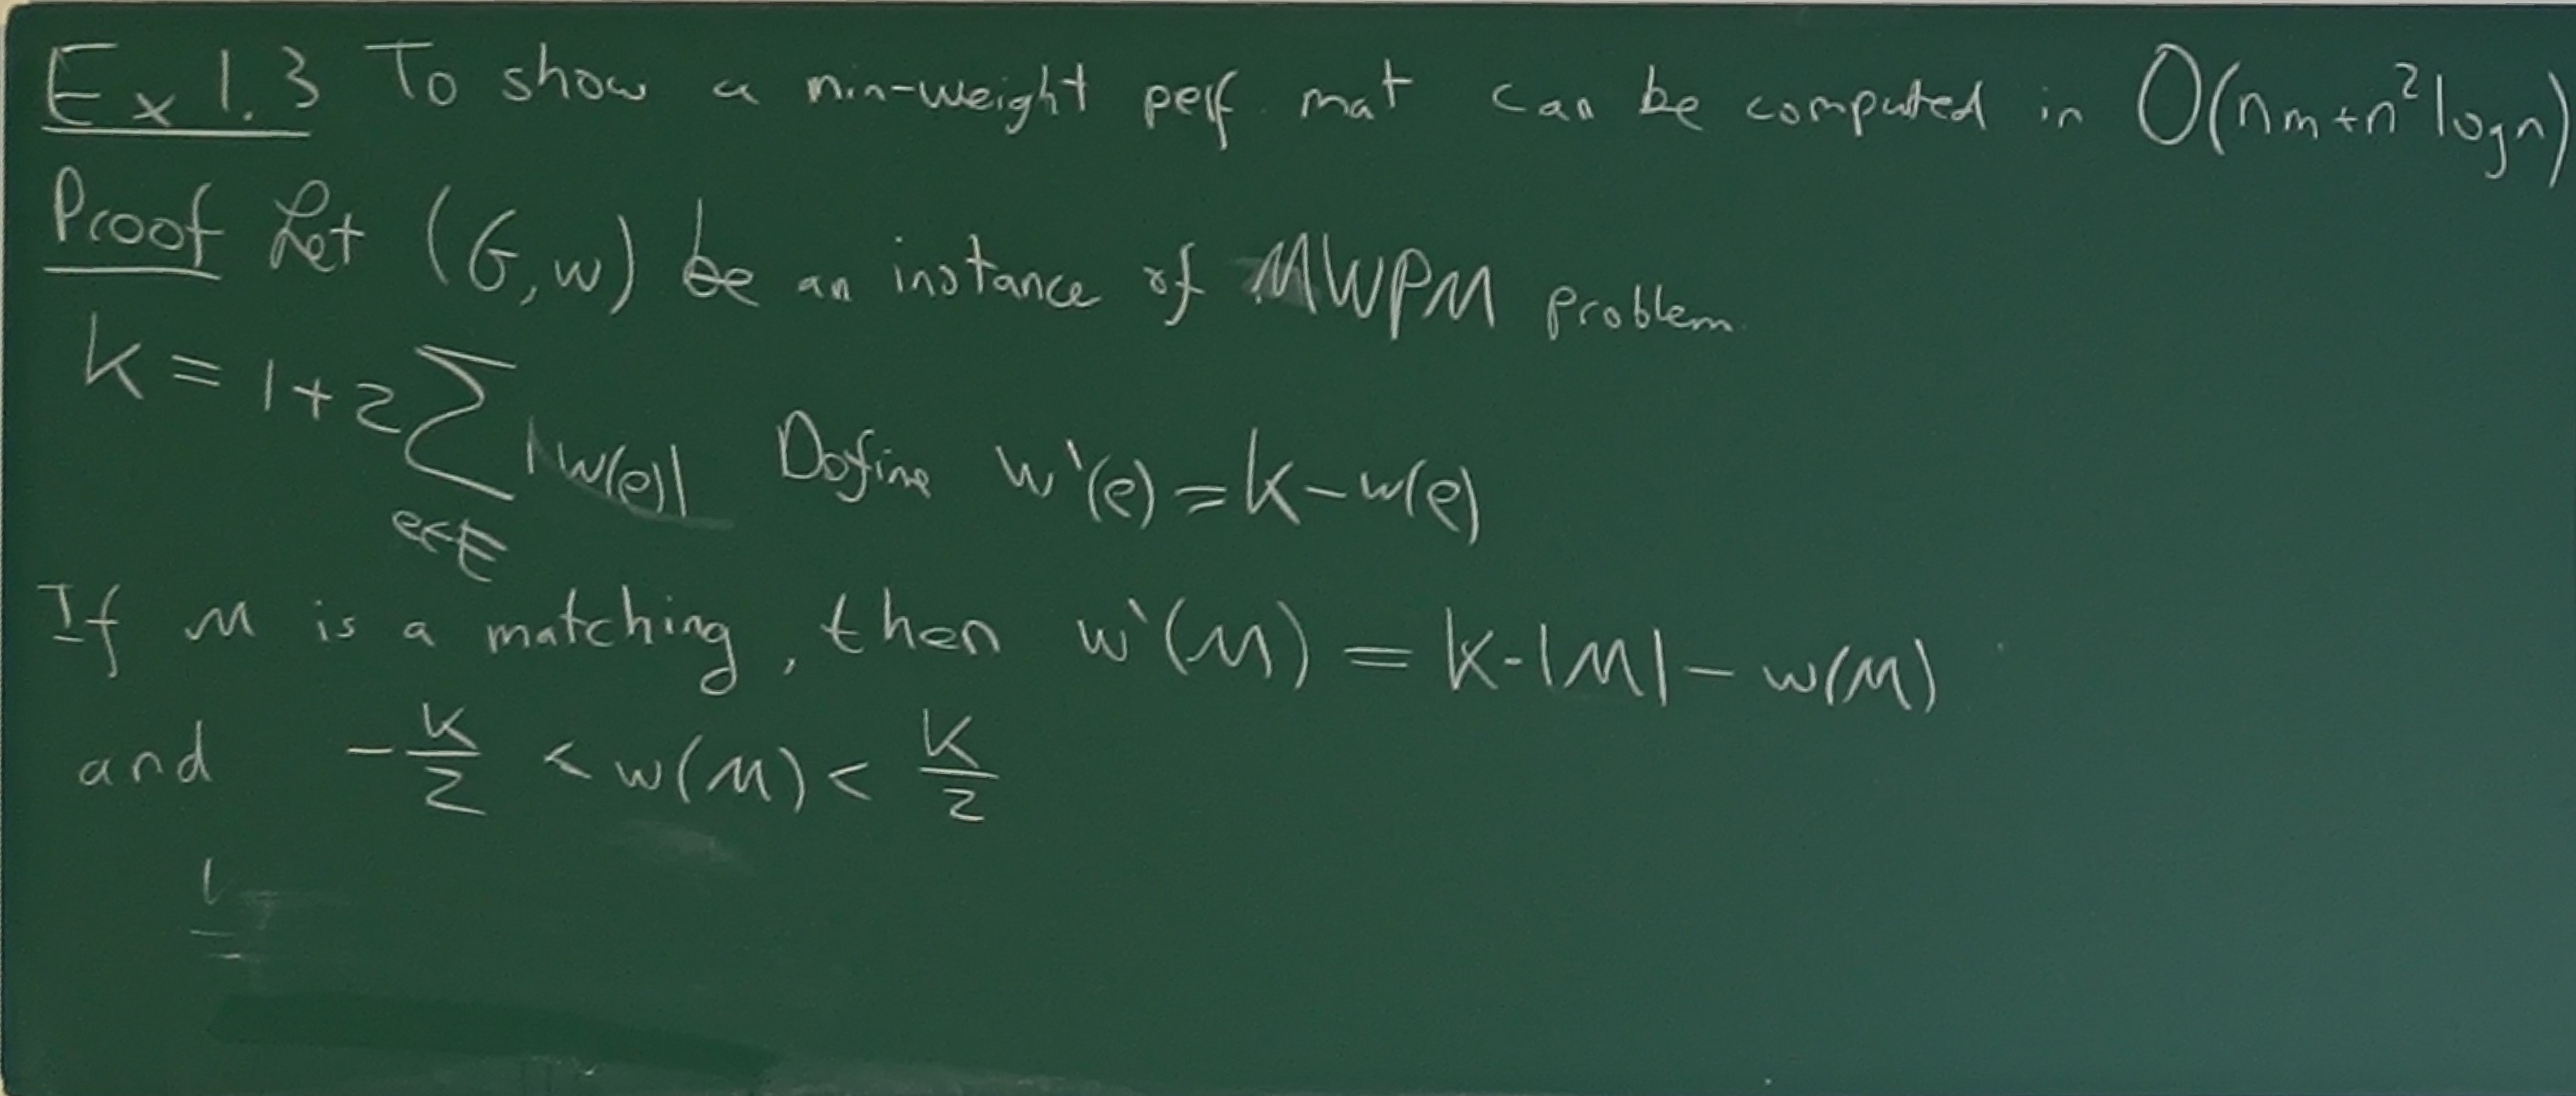 Ex 1.3 To show a min-weight perf. mat can be computed in O(nm+n²logn)
Proof Let (G,w) be an instance of MWPM problem.
K = 1+2∑_{e∈E} |w(e)| Define w'(e) = K-w(e)
If M is a matching, then w'(M) = K·|M| - w(M)
and -K/2 < w(M) < K/2